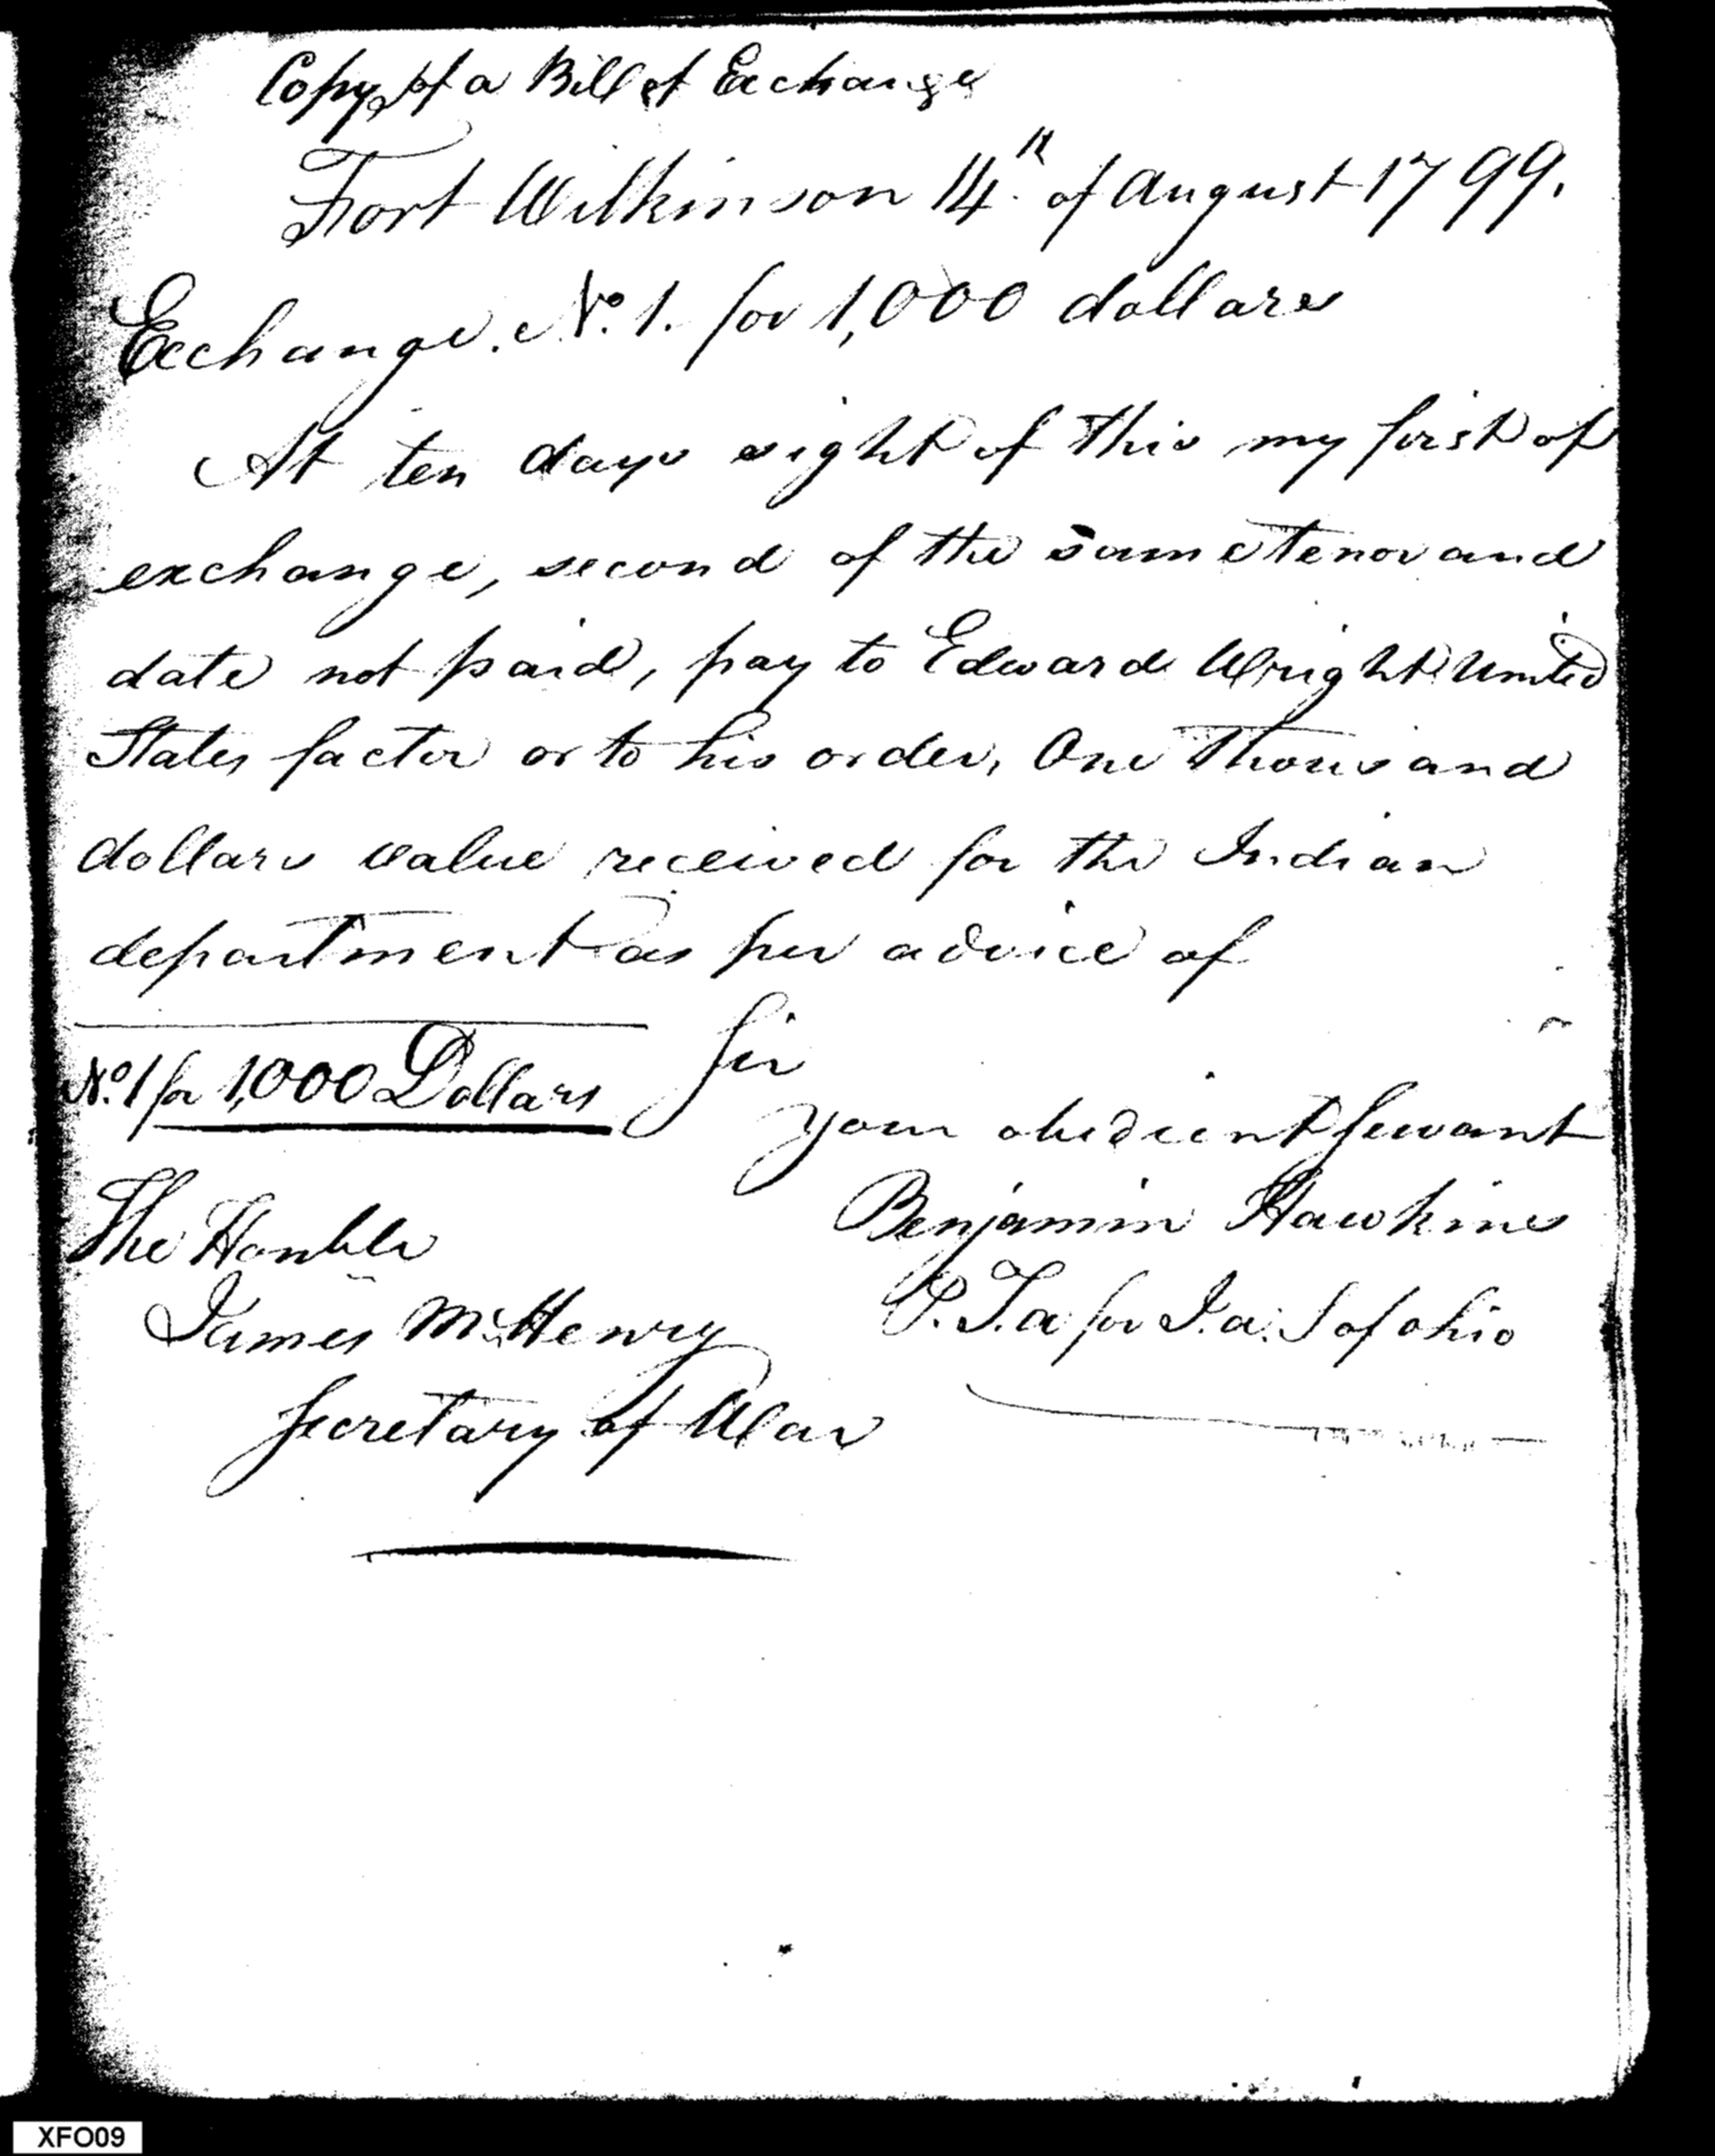 Copy of a Bill of Exchange
Fort Wilkinson 14th. of August 1799.
Exchange. No. 1. for 1,000 dollars
At ten days sight of this my first of
exchange, second of the same tenor and
date not paid, pay to Edward Wright United
States factor or to his order, One Thousand
dollars value received for the Indian
department as per advice of
Sir
No. 1 for 1,000 Dollars
your obedient Servant
Benjamin Hawkins
P. T. a for I. a. S of ohio
The Honble
James McHenry
Secretary of War
XFO09